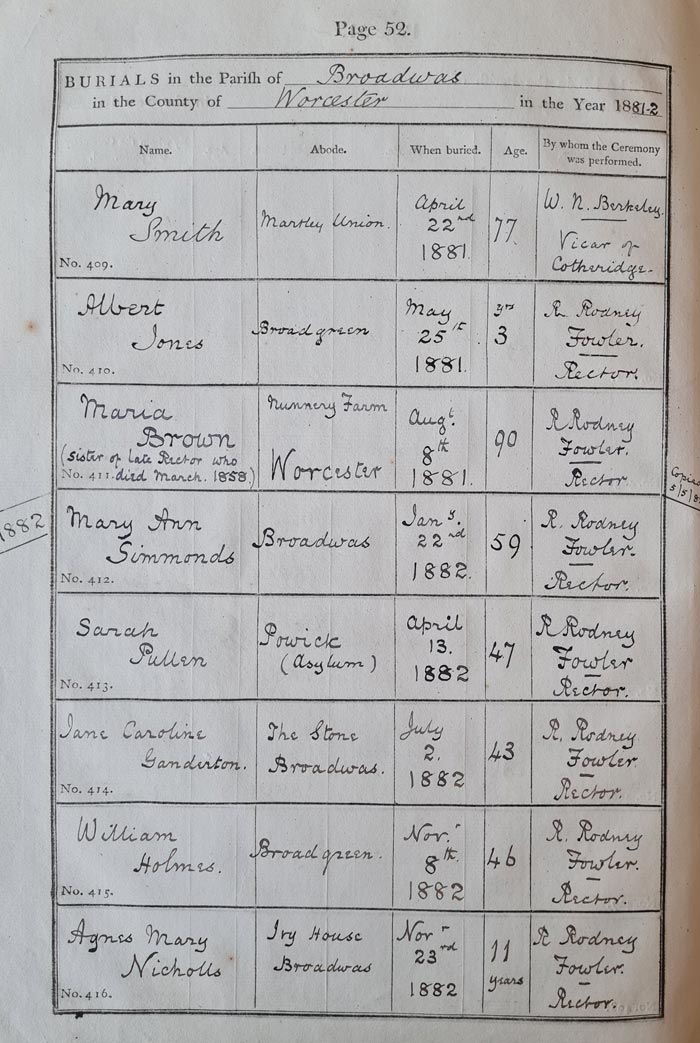 Page 52.
BURIALS in the Parish of Broadwas
in the County of Worcester in the Year 1881-2
Name. Abode. When buried. Age. By whom the Ceremony was performed.
Mary
Smith
No. 409.
Martley Union.
April
22nd
1881
77
W. N. Berkeley.
Vicar of
Cotheridge.
Albert
Jones
No. 410.
Broadgreen
May
25th
1881.
yrs
3
R. Rodney
Fowler.
Rector.
Maria
Brown
(sister of late Rector who
No. 411. died March. 1858.)
Nunnery Farm
Worcester
Augt.
8th
1881.
90
R Rodney
Fowler.
Rector.
Copied
5/5/8
1882
Mary Ann
Simmonds
No. 412.
Broadwas
Jany.
22nd
1882.
59
R. Rodney
Fowler.
Rector.
Sarah
Pullen
No. 413.
Powick
(Asylum)
April
13.
1882
47
R Rodney
Fowler
Rector.
Jane Caroline
Ganderton.
No. 414.
The Stone
Broadwas.
July
2.
1882
43
R. Rodney
Fowler
Rector.
William
Holmes.
No. 415.
Broadgreen.
Novr.
8th
1882
46
R. Rodney
Fowler.
Rector.
Agnes Mary
Nicholls
No. 416.
Ivy House
Broadwas
Novr
23rd
1882
11
years
R Rodney
Fowler.
Rector.